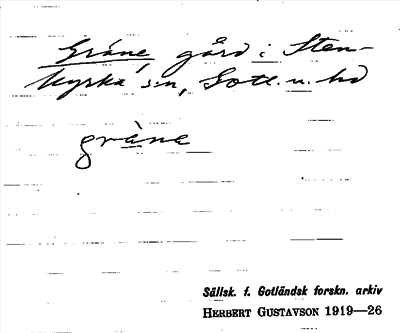 Gråne, gård i Sten-
kyrka sn, Gotl. n. hd
gràne
Sällsk. f. Gotländsk forskn. arkiv
HERBERT GUSTAVSON 1919—26